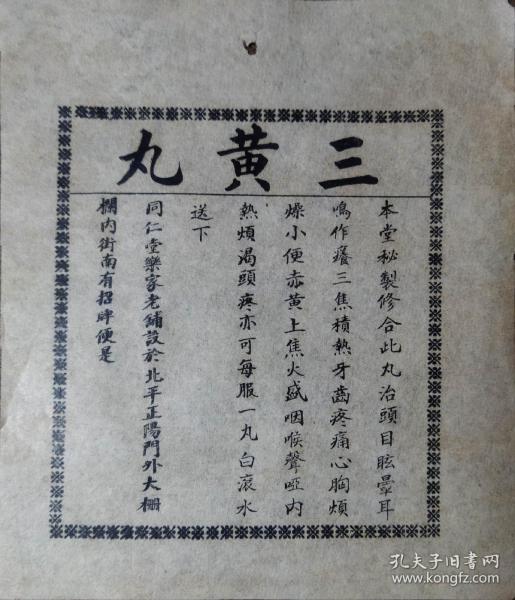 三黄丸
本堂秘製修合此丸治頭目眩暈耳
鳴作癢三焦積熱牙齒疼痛心胸煩
燥小便赤黄上焦火盛咽喉聲啞内
熱煩渴頭疼亦可每服一丸白滾水
送下
同仁堂樂家老鋪設於北平正陽門外大栅
欄内街南有招牌便是
孔夫子旧书网
www.kongfz.com